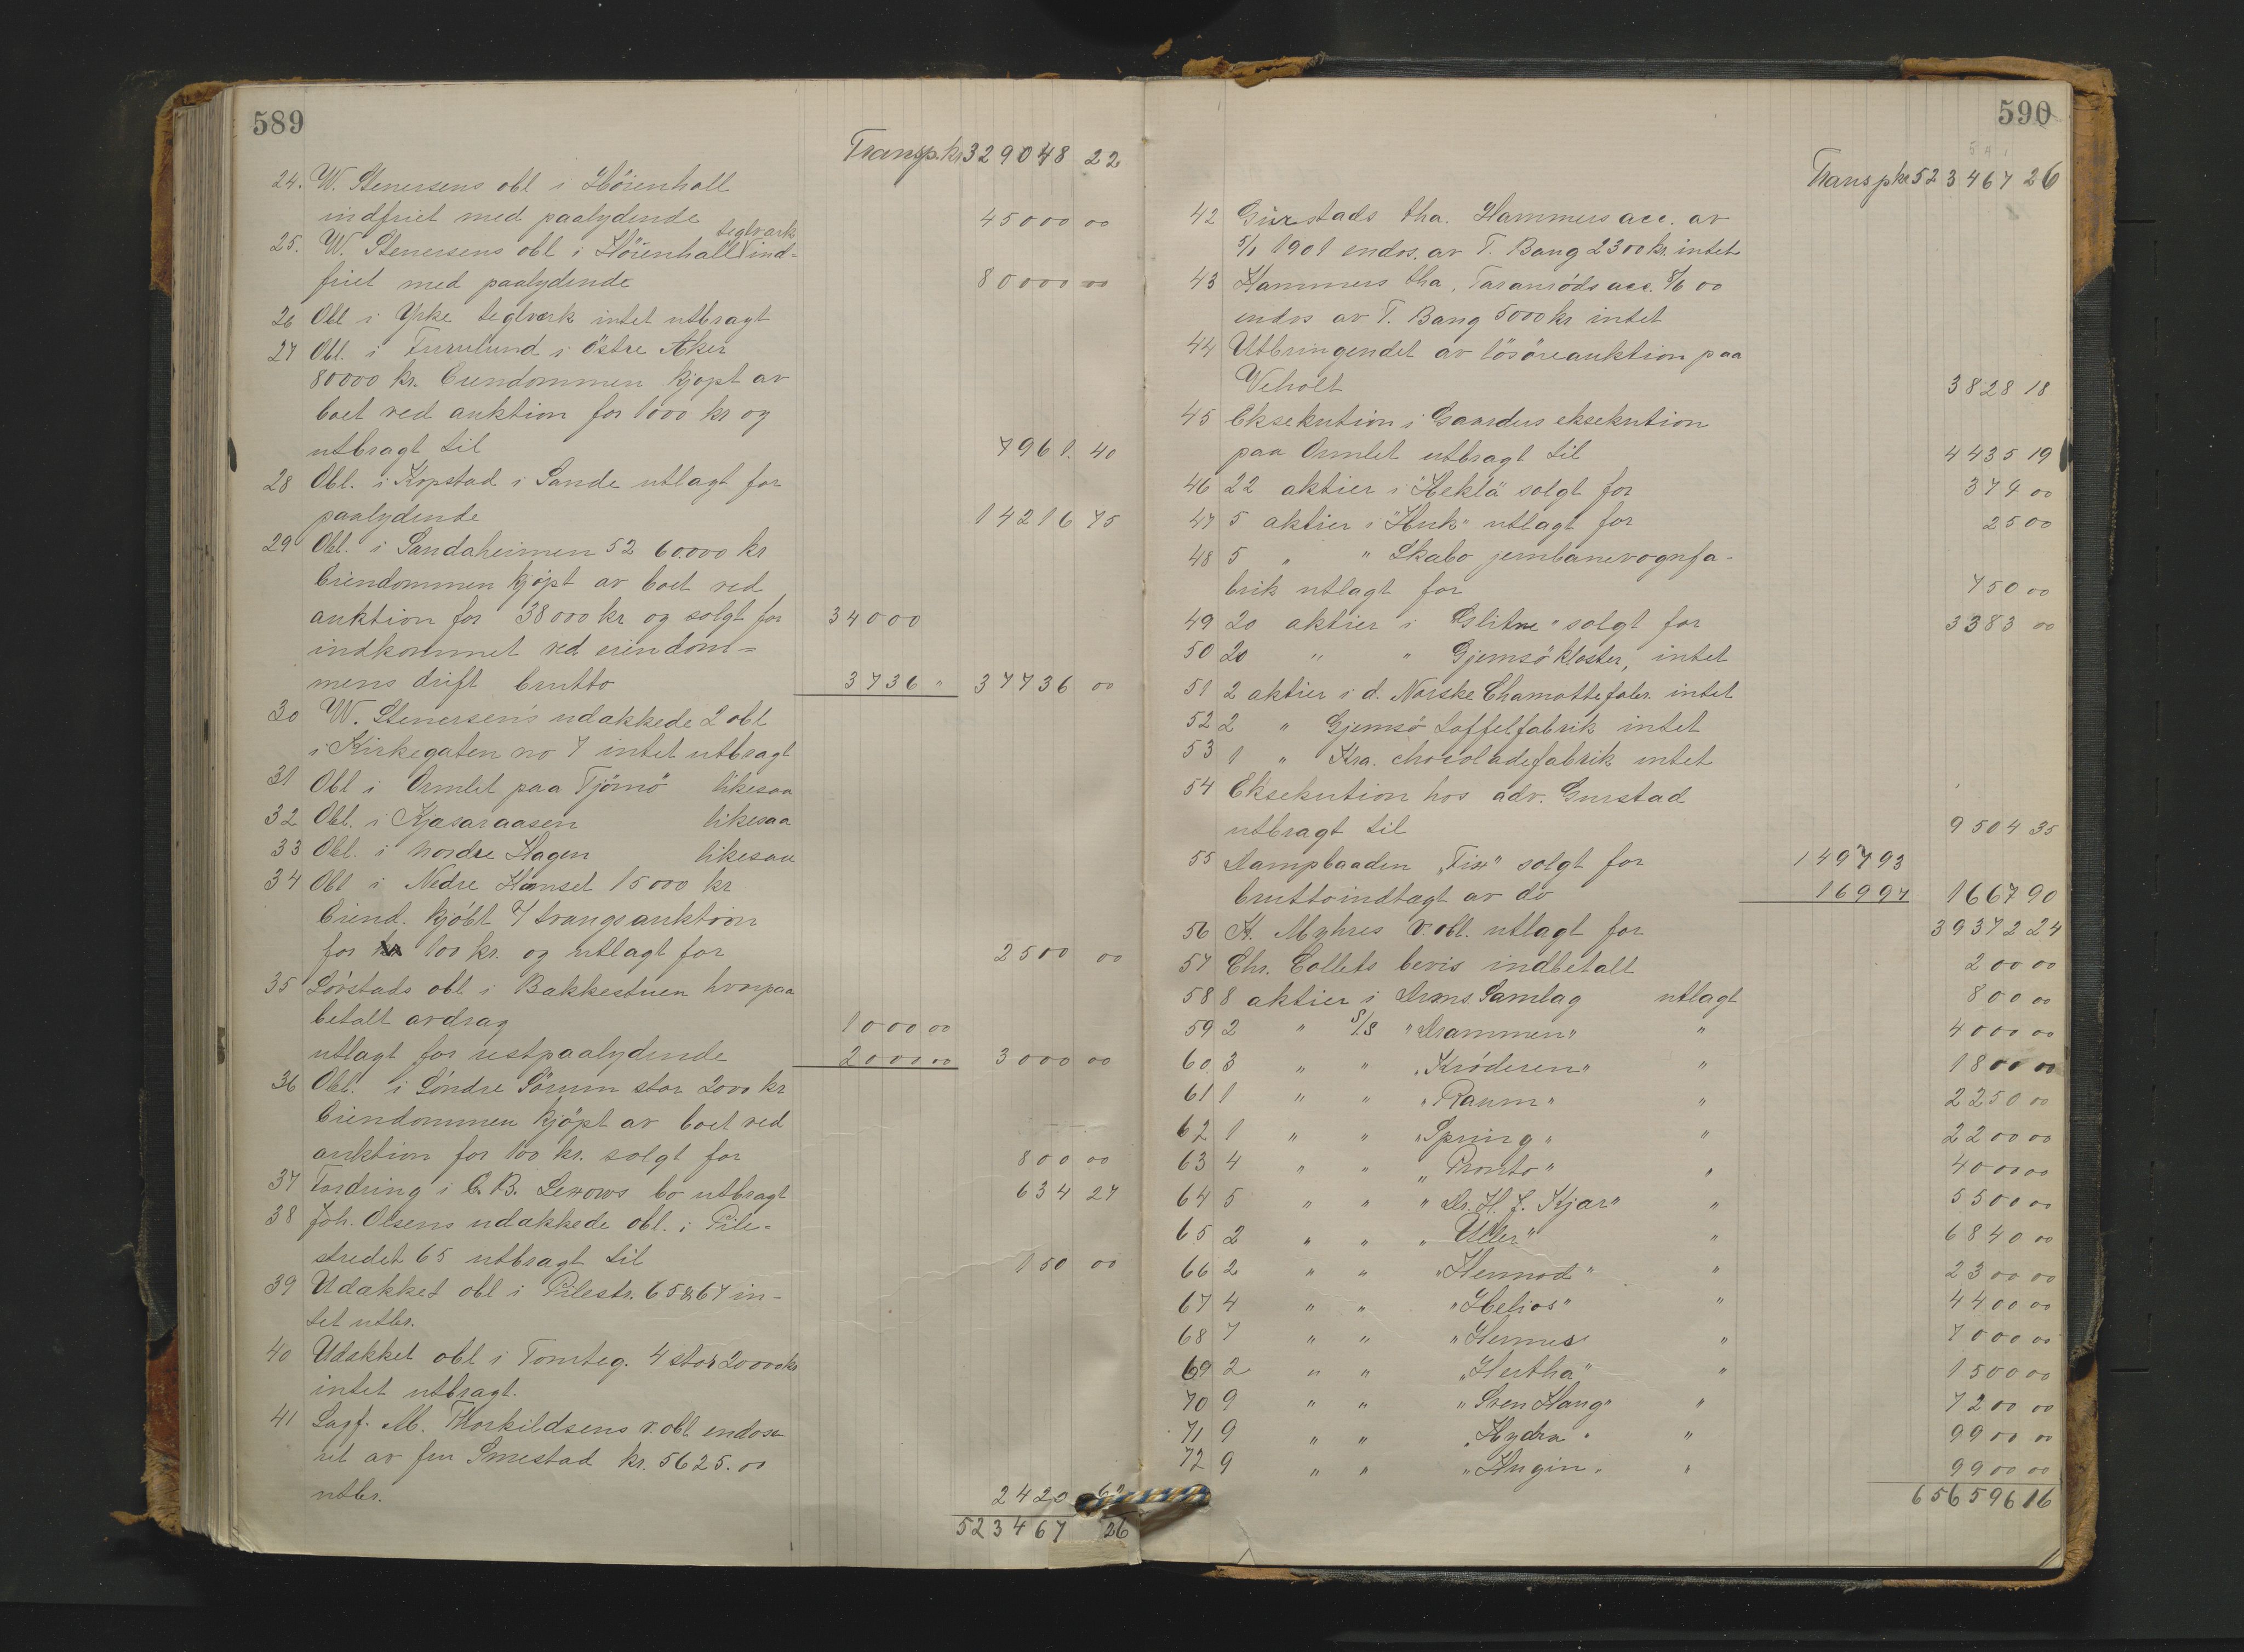 589
Transp. kr 329048 22
24. W. Stenersens obl i Höienhall
indfriet med paalydende 45000 00
25. W. Stenersens obl i Höienhall teglverk ind-
friet med paalydende 80000 00
26 Obl i Ypke teglverk intet utbragt
27 Obl. i Furulund i Östre Aker
80000 kr. Eiendommen kjøpt av
boet ved auktion for 1000 kr og
utbragt til 7961. 40
28 Obl. i Kopstad i Sande utlagt for
paalydende 14216 75
29 Obl. i Sandaheimen 52 60.000 kr
Eiendommen kjöpt av boet ved
auktion for 38000 kr og solgt for 34000
indkommet ved eiendom=
mens drift brutto 3736 " 37736 00
30 W. Stenersen's udækkede 2 obl
i Kirkegaten no 7 intet utbragt
31 Obl i Ormlet paa Tjömö likesaa
32 Obl. i Kjæsaraasen likesaa
33 Obl. i nordre Hagen likesaa
34 Obl i Nedre Hamset 15000 kr
Eiend. kjöbt 7 tvangsauktion
for 100 kr. og utlagt for 2500 00
35 Lörstads obl i Bakkestuen hvorpaa
betalt avdrag 1000 00
utlagt for restpaalydende 2000 00 3000 00
36 Obl. i Söndre Sörum stor 2000 kr
Eiendommen kjöpt av boet ved
auktion for 100 kr. solgt for 800 00
37 Fordring i C. B. Lexows bo utbragt 634 27
38 Joh. Olsens udækkede obl. i Pile-
stredet 65 utbragt til 150 00
39 Udækket obl i Pilestr. 65 & 67 in-
tet utbr.
40 Udækket obl i Tomteg. 4 stor 20000 kr
intet utbragt.
41 Sagf. M. Thorkildsens v. obl endose
ret av fru Smestad kr. 5625.00
utbr. 2420 62
523467 26
590
Transp kr 523467 26
42 Gürstads tha. Hammers acc. av
5/1 1901 endos. av T. Bang 2300 kr. intet
43 Hammers tha. Taranröds acc. 8/6 00
endos av T. Bang 5000 kr intet
44 Utbringendet av lösöreauktion paa
Veholt 3828 18
45 Eksekution i Gaarders eksekution
paa Ormlet utbragt til 4435 19
46 22 aktier i "Hekla" solgt for 374 00
47 5 aktier i "Huk" utlagt for 25 00
48 5 " " Skabo jernbanevognfa-
brik utlagt for 750 00
49 20 aktier i Glitne" solgt for 3383 00
50 20 " " Gjemsö kloster, intet
51 2 aktier i d. Norske Chamottefabr. intet
52 2 " Gjemsö Loffelfabrik intet
53 1 " Kra. chocoladefabrik intet
54 Eksekution hos adv. Gurstad
utbragt til 9504 35
55 Dampbaaden „Fix" solgt for 1497 93
bruttoindtægt av do 169 97 1667 90
56 H. Myhres v. obl. utlagt for 39372 24
57 Chr. Collets bevis indbetalt 200 00
58 8 aktier i Drms Samlag utlagt 800 00
59 2 " S/S "Drammen" " 4000 00
60. 3 " " "Kröderen" " 1800 00
61 1 " " "Raum" " 2250 00
62 1 " " "Spring" " 2200 00
63 4 " " „Pronto" " 4000 00
64 5 " " "Dr. H. J. Kjær" " 5500 00
65 2 " " "Uller" " 6840 00
66 2 " " "Hermod" " 2300 00
67 4 " " "Helios" " 4400 00
68 7 " " "Hermes " 7000 00
69 2 " " „Hertha" " 1500 00
70 9 " " "Sven Hang" " 7200 00
71 9 " " "Hydra" " 9900 00
72 9 " " "Hugin" " 9900 00
656596 16